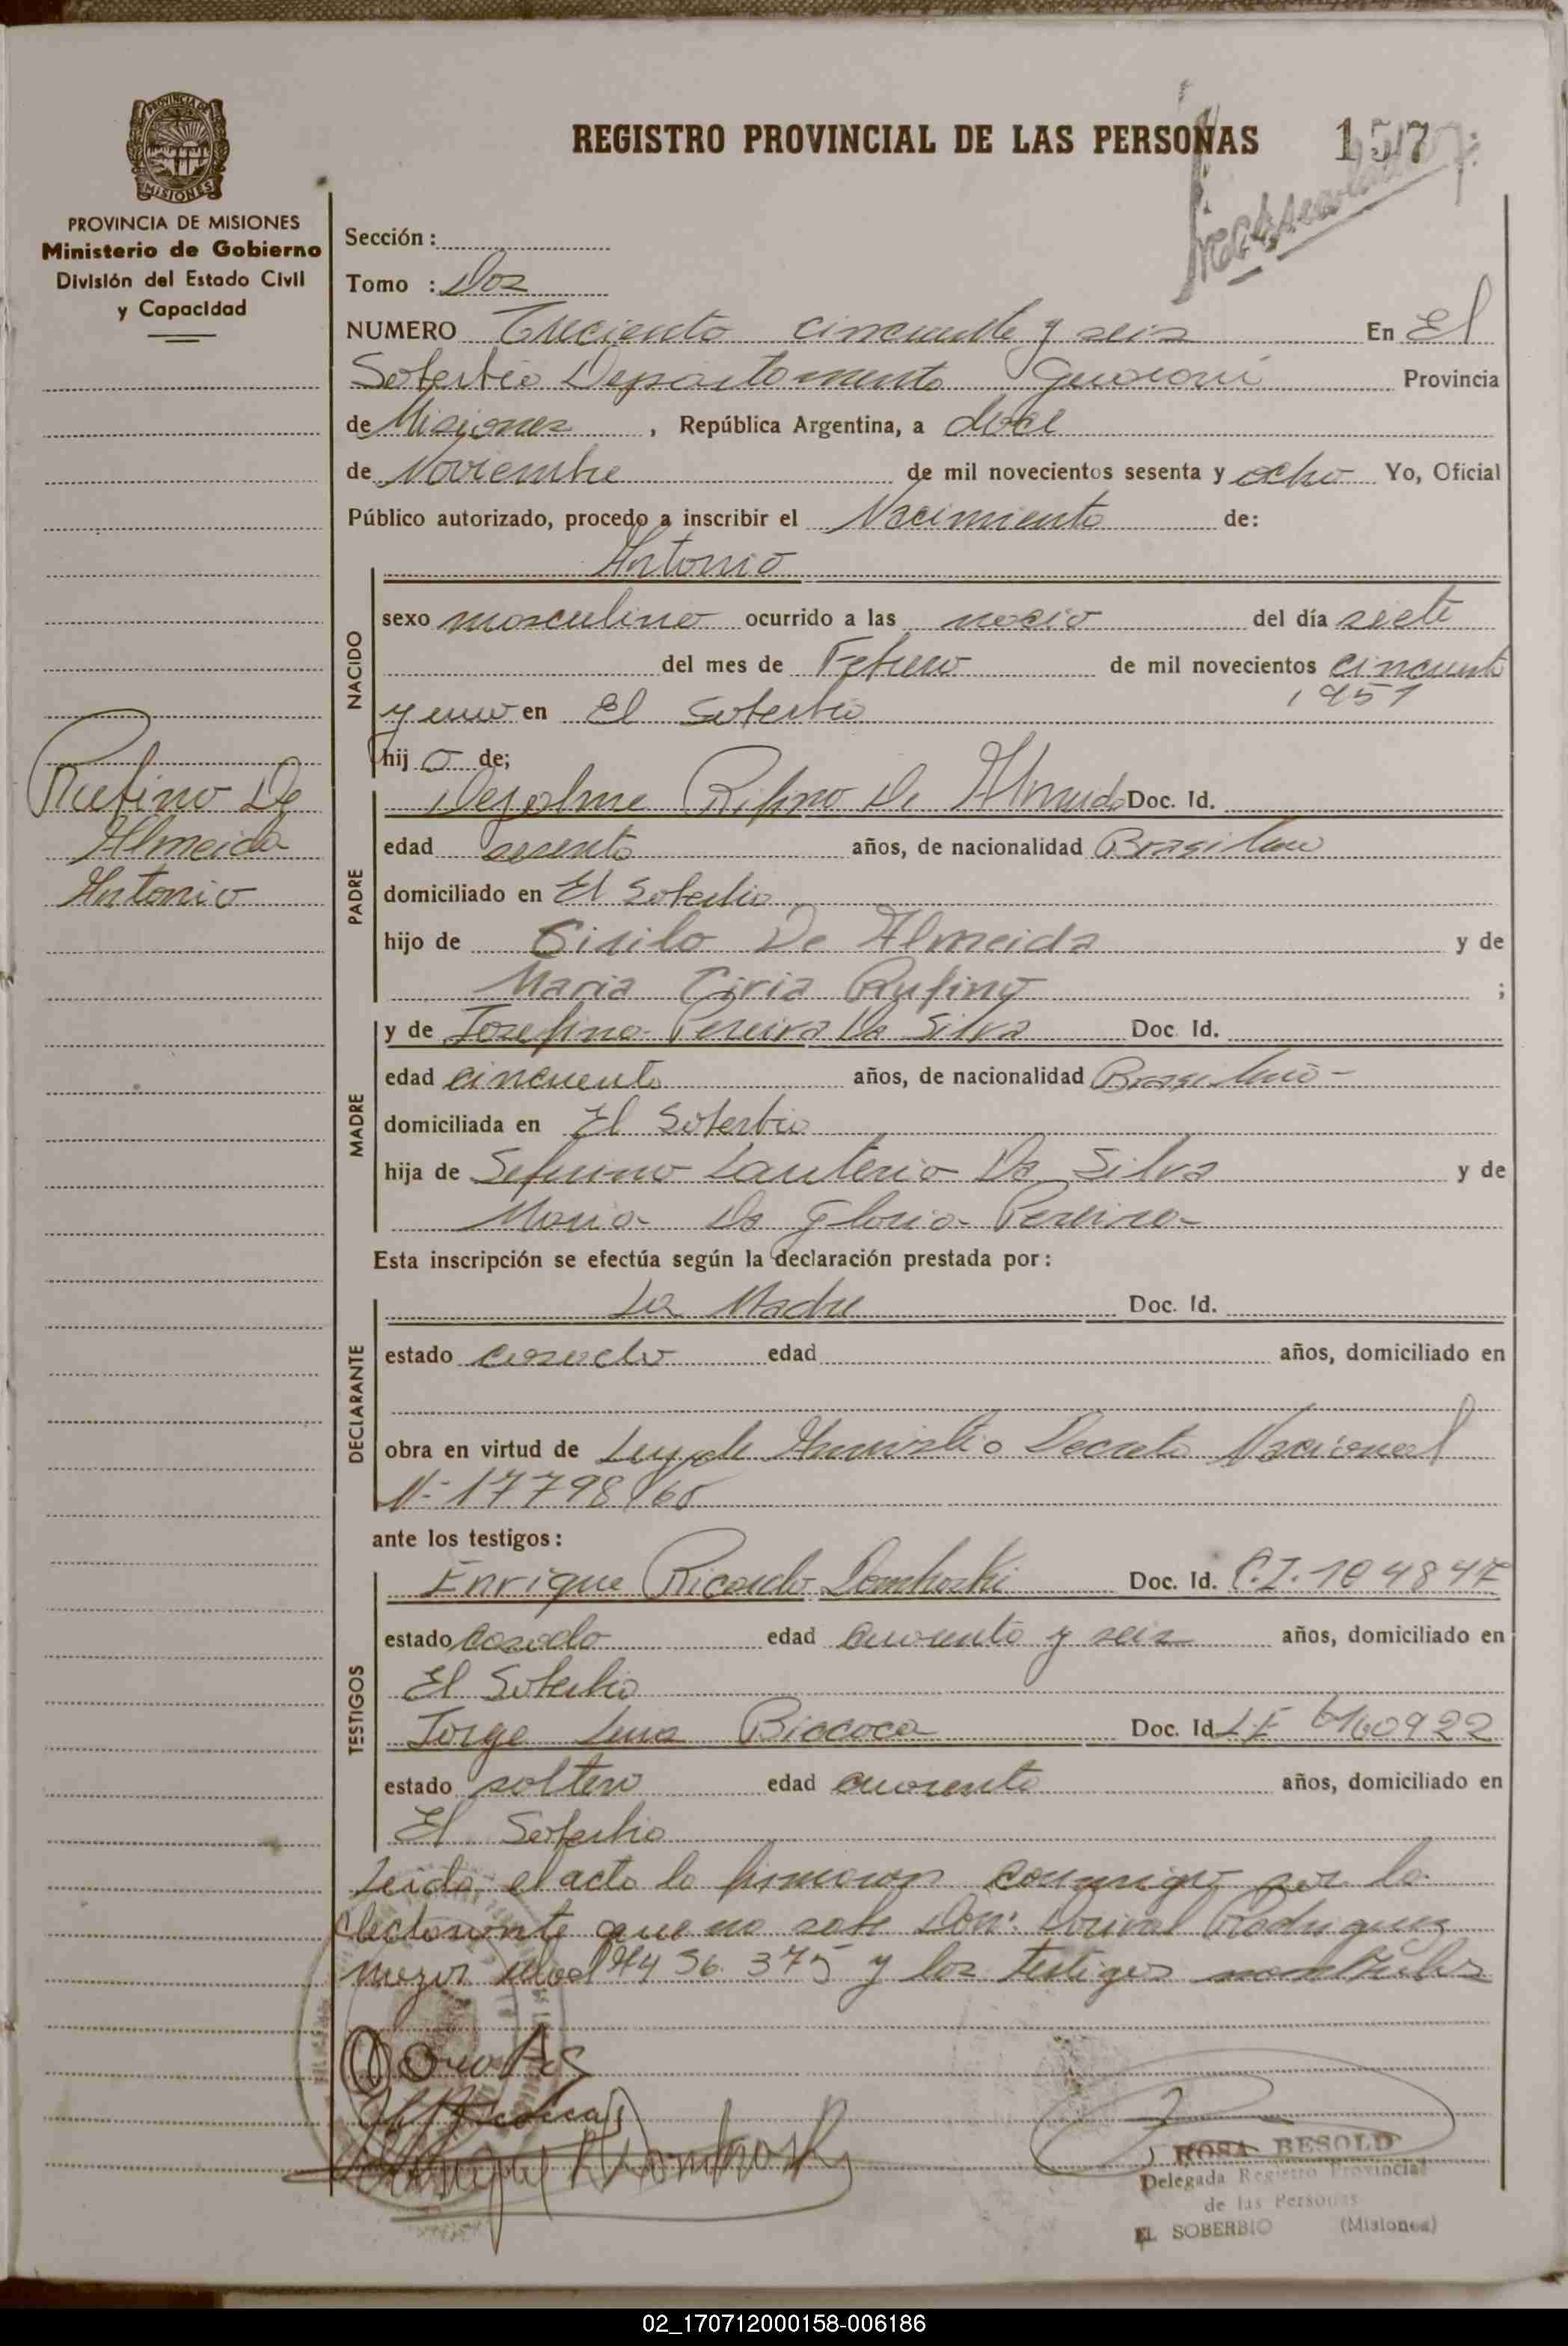 PROVINCIA DE
MISIONES
PROVINCIA DE MISIONES
Ministerio de Gobierno
División del Estado Civil
y Capacidad
REGISTRO PROVINCIAL DE LAS PERSONAS 157
Sección :
Tomo : Dos
NUMERO Treciento cincuenta y seis En El
Soberbio Departamento Guarani Provincia
de Misiones , República Argentina, a doce
de Noviembre de mil novecientos sesenta y ocho Yo, Oficial
Público autorizado, procedo a inscribir el Nacimiento de:
Antonio
NACIDO
sexo masculino ocurrido a las nacio del día siete
del mes de Febrero de mil novecientos cincuenta
1951
y uno en El Soberbio
hij o de;
Rufino De
Almeida
Antonio
PADRE
Rifino De Almeida Doc. Id.
edad sesenta años, de nacionalidad Brasilero
domiciliado en El Soberbio
hijo de Sirilo De Almeida y de
Maria Ciria Rufino ;
MADRE
y de Josefina Pereira Da Silva Doc. Id.
edad cincuenta años, de nacionalidad Brasilero -
domiciliada en El Soberbio
hija de Da Silva y de
Maria Da Gloria Pereira
Esta inscripción se efectúa según la declaración prestada por :
DECLARANTE
La Madre Doc. Id.
estado casado edad años, domiciliado en
obra en virtud de Ley de Amnistia Decreto Nacional
Nº 17798/65
ante los testigos :
TESTIGOS
Enrique Ricardo Domhoski Doc. Id. C.I. 104847
estado casado edad cuarenta y seis años, domiciliado en
El Soberbio
Jorge Luis Biococa Doc. Id L.E 6160922
estado soltero edad cuarenta años, domiciliado en
El Soberbio
Leida el acta la firmaron conmigo por la
que no sabe Don: Rodriguez
y los testigos
ROSA BESOLD
Delegada Registro Provincial
de las Personas
EL SOBERBIO (Misiones)
02_170712000158-006186